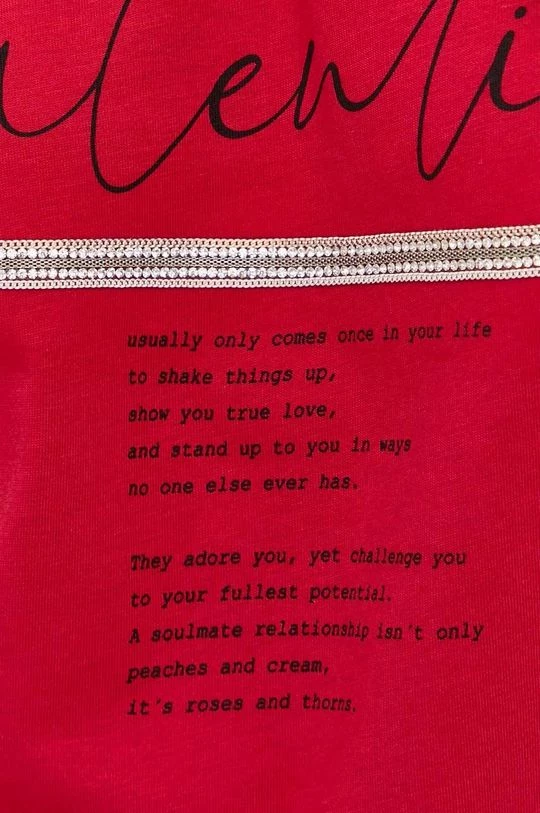 alenti
usually only comes once in your life
to shake things up,
show you true love,
and stand up to you in ways
no one else ever has.
They adore you, yet challenge you
to your fullest potential.
A soulmate relationship isn't only
peaches and cream,
it's roses and thorns.